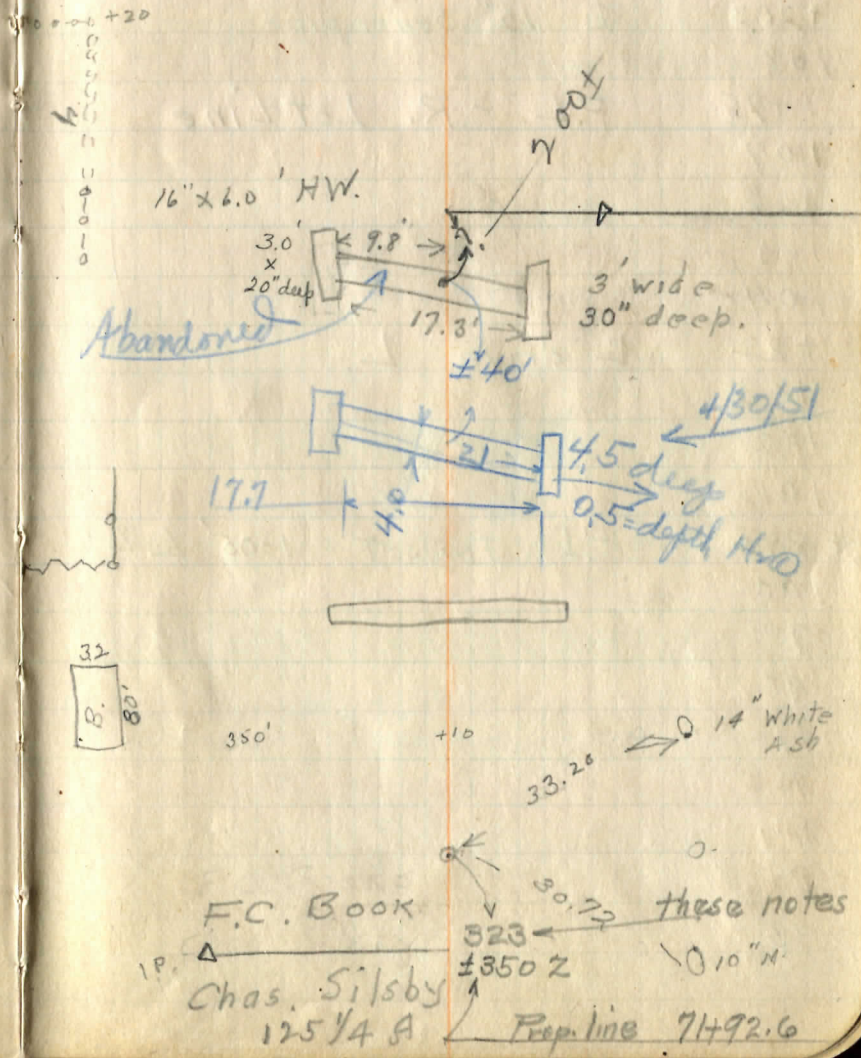 +20
200±
16" x 6.0' HW.
3.0'
x
20" deep
9.8'
17.3'
3' wide
30" deep.
Abandoned
±40'
4/30/51
21
4.5 deep
0.5=depth H2O
17.7
4.0
32
B.
80'
350'
+10
14" White
Ash
33.20
30.77
F.C. Book
these notes
323
I.P.
±350
10" M.
Chas. Silsby
125 1/4 A
Prop. line 71+92.6